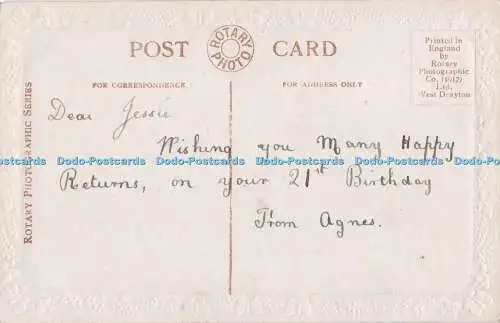 POST CARD
ROTARY PHOTO
Printed in
England
by
Rotary
Photographic
Co. (1917)
Ltd.
West Drayton
FOR CORRESPONDENCE
FOR ADDRESS ONLY
ROTARY PHOTOGRAPHIC SERIES
Dear Jessie
Wishing you Many Happy
Dodo-Postcards Dodo-Postcards Dodo-Postcards Dodo-Postcards Dodo-Postcards
Returns, on your 21st Birthday
From Agnes.